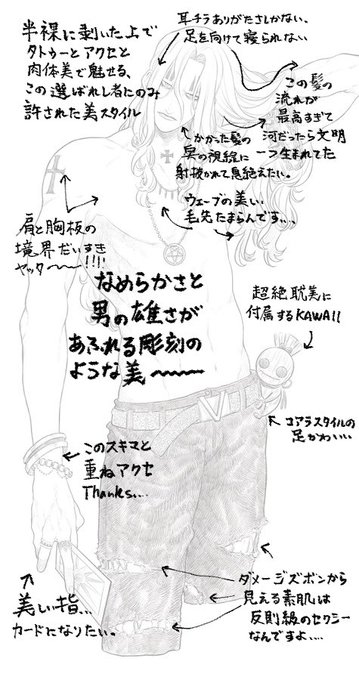 半裸に剥いた上で
タトゥーとアクセと
肉体美で魅せる、
この選ばれし者にのみ
許された美スタイル
耳チラありがたさしかない、
足を向けて寝られない
この髪の
流れが
最高すぎて
河だったら文明
一つ生まれてた
かかった髪の
奥の視線に
射抜かれて息絶えたい。
ウェーブの美しい
毛先たまらんです、、、
肩と胸板の
境界だいすき
ヤッター〜〜!!!!
なめらかさと
男の雄さが
あふれる彫刻の
ような美〜〜〜
超絶耽美に
付属するKAWAII
コアラスタイルの
足かわいい...
このスキマと
重ねアクセ
Thanks....
美しい指...
カードになりたい。
ダメージズボンから
見える素肌は
反則級のセクシー
なんですよ....